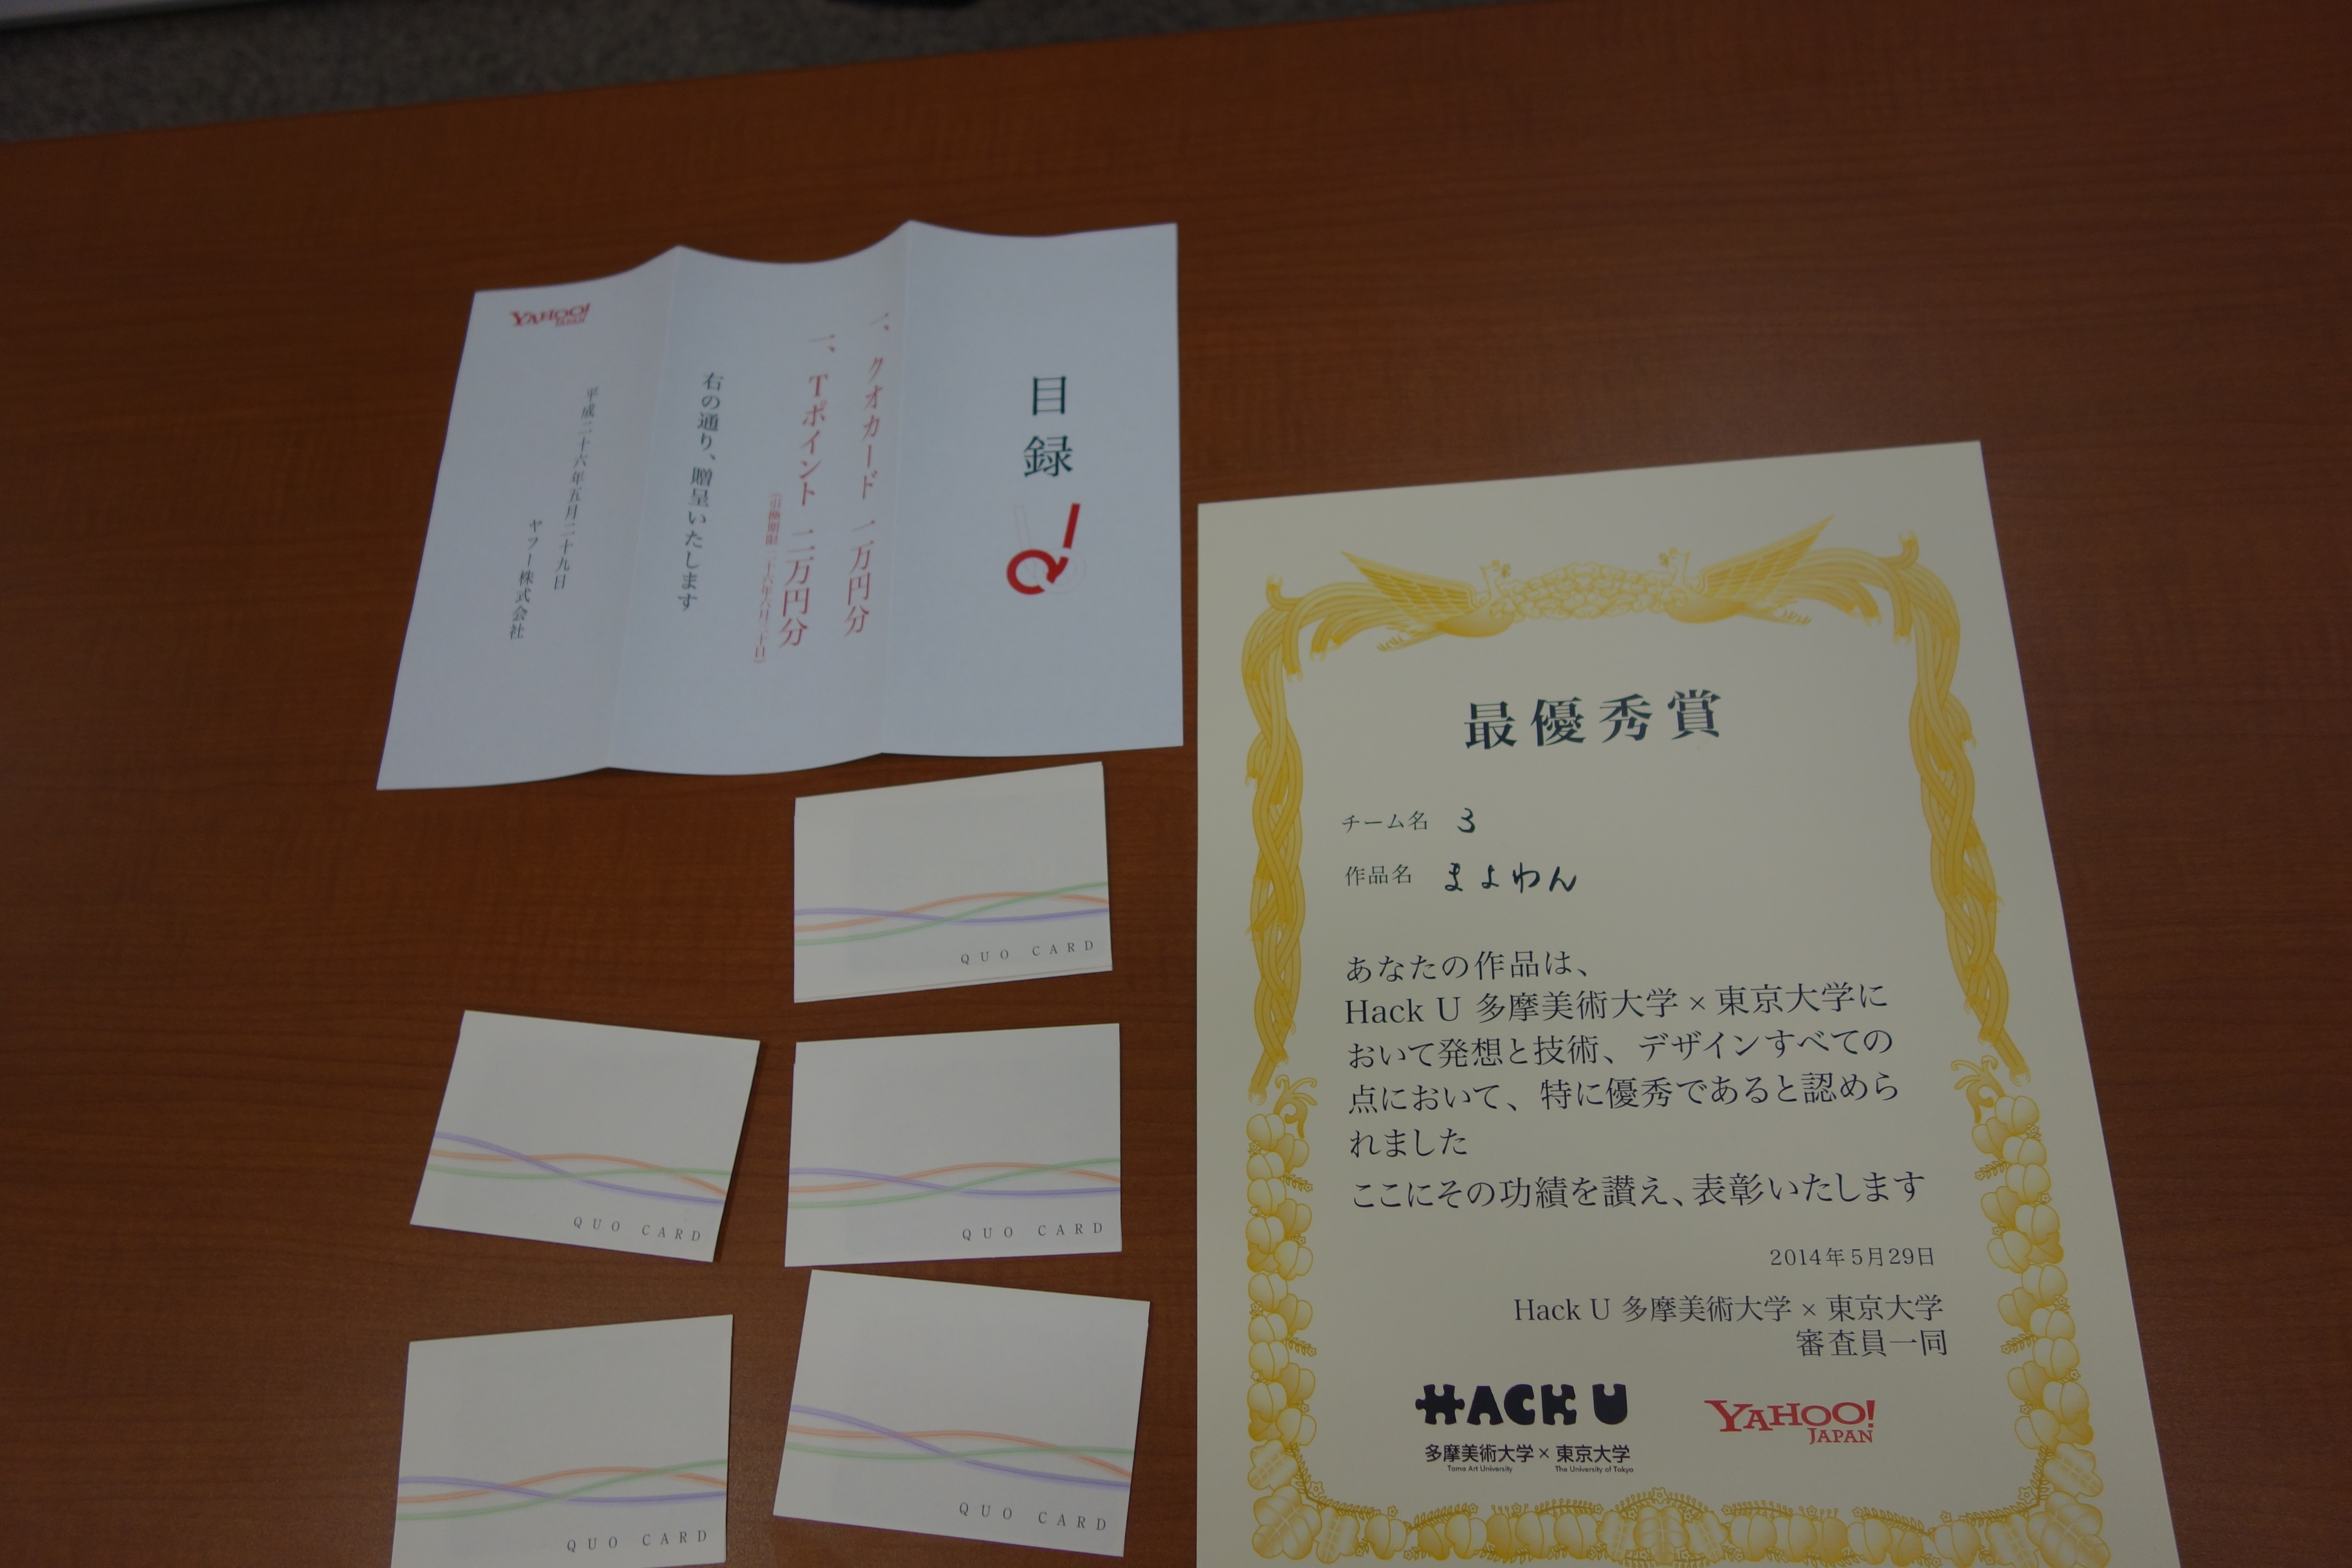 目録
一、クオカード 一万円分
一、Tポイント 二万円分
(引換期限 二十六年六月三十日)
右の通り、贈呈いたします
平成二十六年五月二十九日
ヤフー株式会社
YAHOO!
JAPAN
QUO CARD
QUO CARD
QUO CARD
QUO CARD
QUO CARD
最優秀賞
チーム名 3
作品名 まよわん
あなたの作品は、
Hack U 多摩美術大学×東京大学に
おいて発想と技術、デザインすべての
点において、特に優秀であると認めら
れました
ここにその功績を讃え、表彰いたします
2014年5月29日
Hack U 多摩美術大学×東京大学
審査員一同
HACK U
多摩美術大学×東京大学
Tama Art University The University of Tokyo
YAHOO!
JAPAN